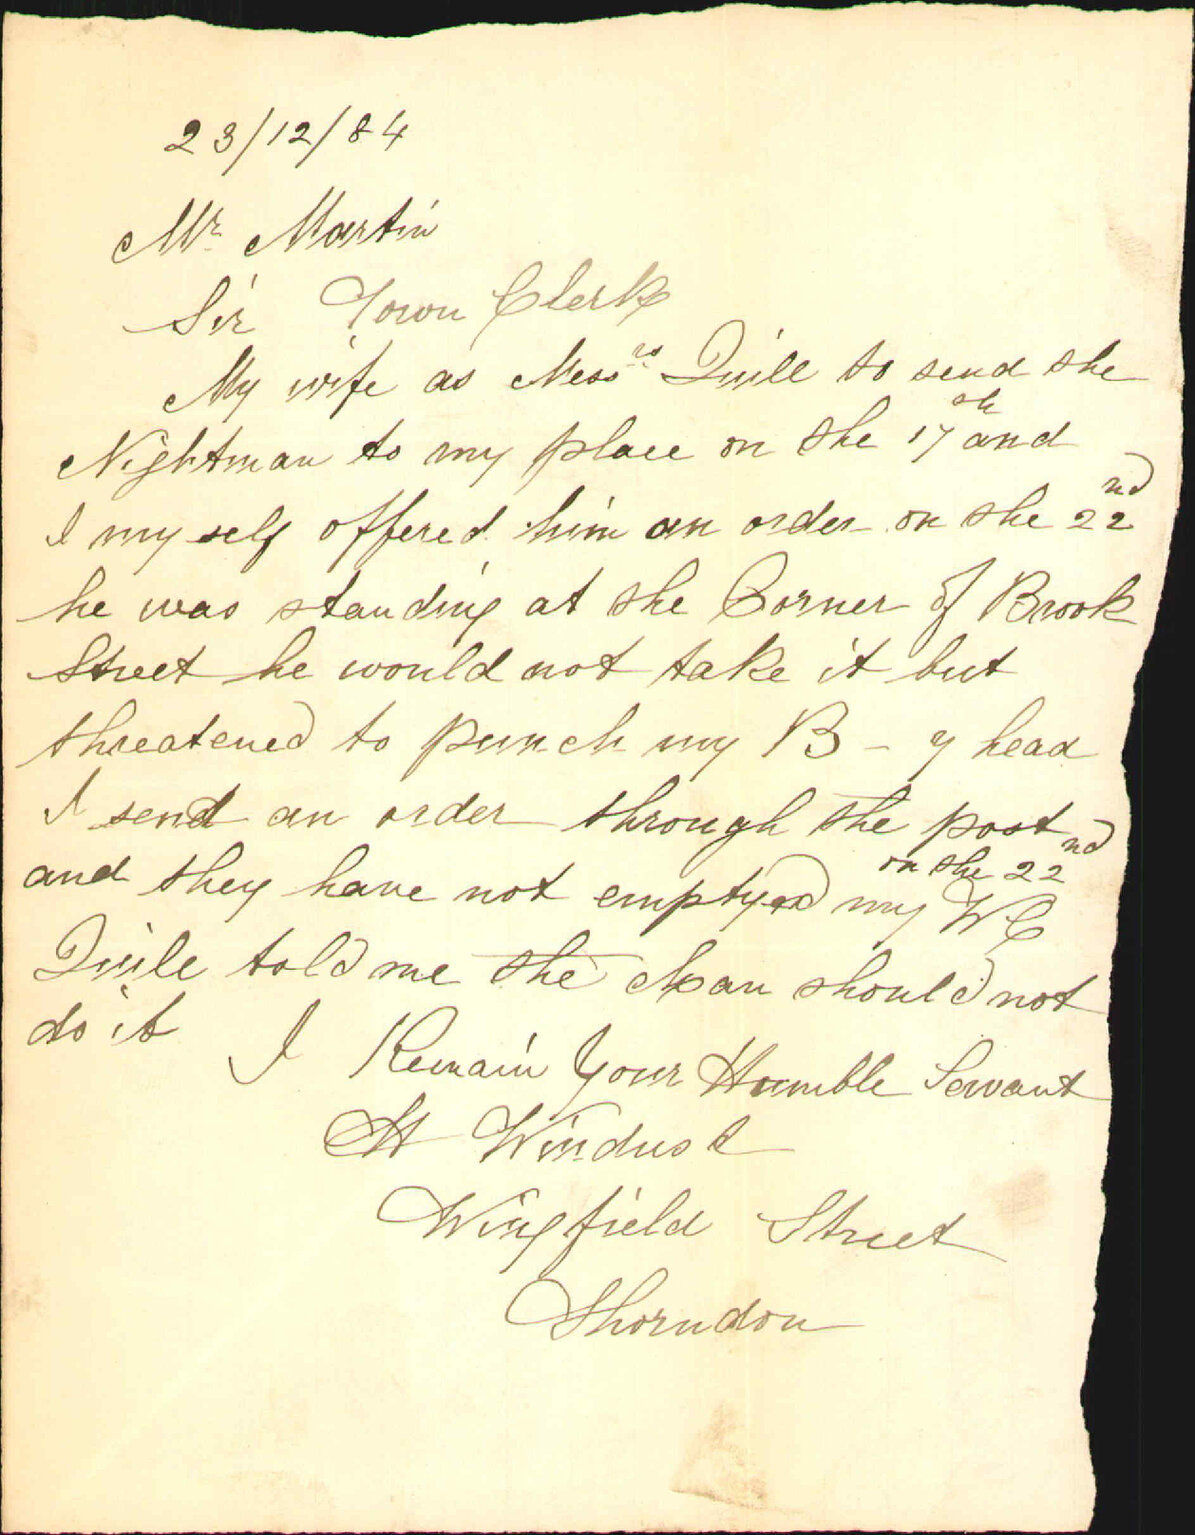 23/12/84
Mr Martin
Sir Town Clerk
My wife as Messrs Quill to send the
Nightman to my place on the 17th and
I my self offered him an order on the 22nd
he was standing at the Corner of Brook
Street he would not take it but
threatened to punch my B - y head
I send an order through the post
on the 22nd
and they have not emptyed my WC
Quile told me the Man should not
do it
I Remain Your Humble Servant
H Windust
Wingfield Street
Thorndon